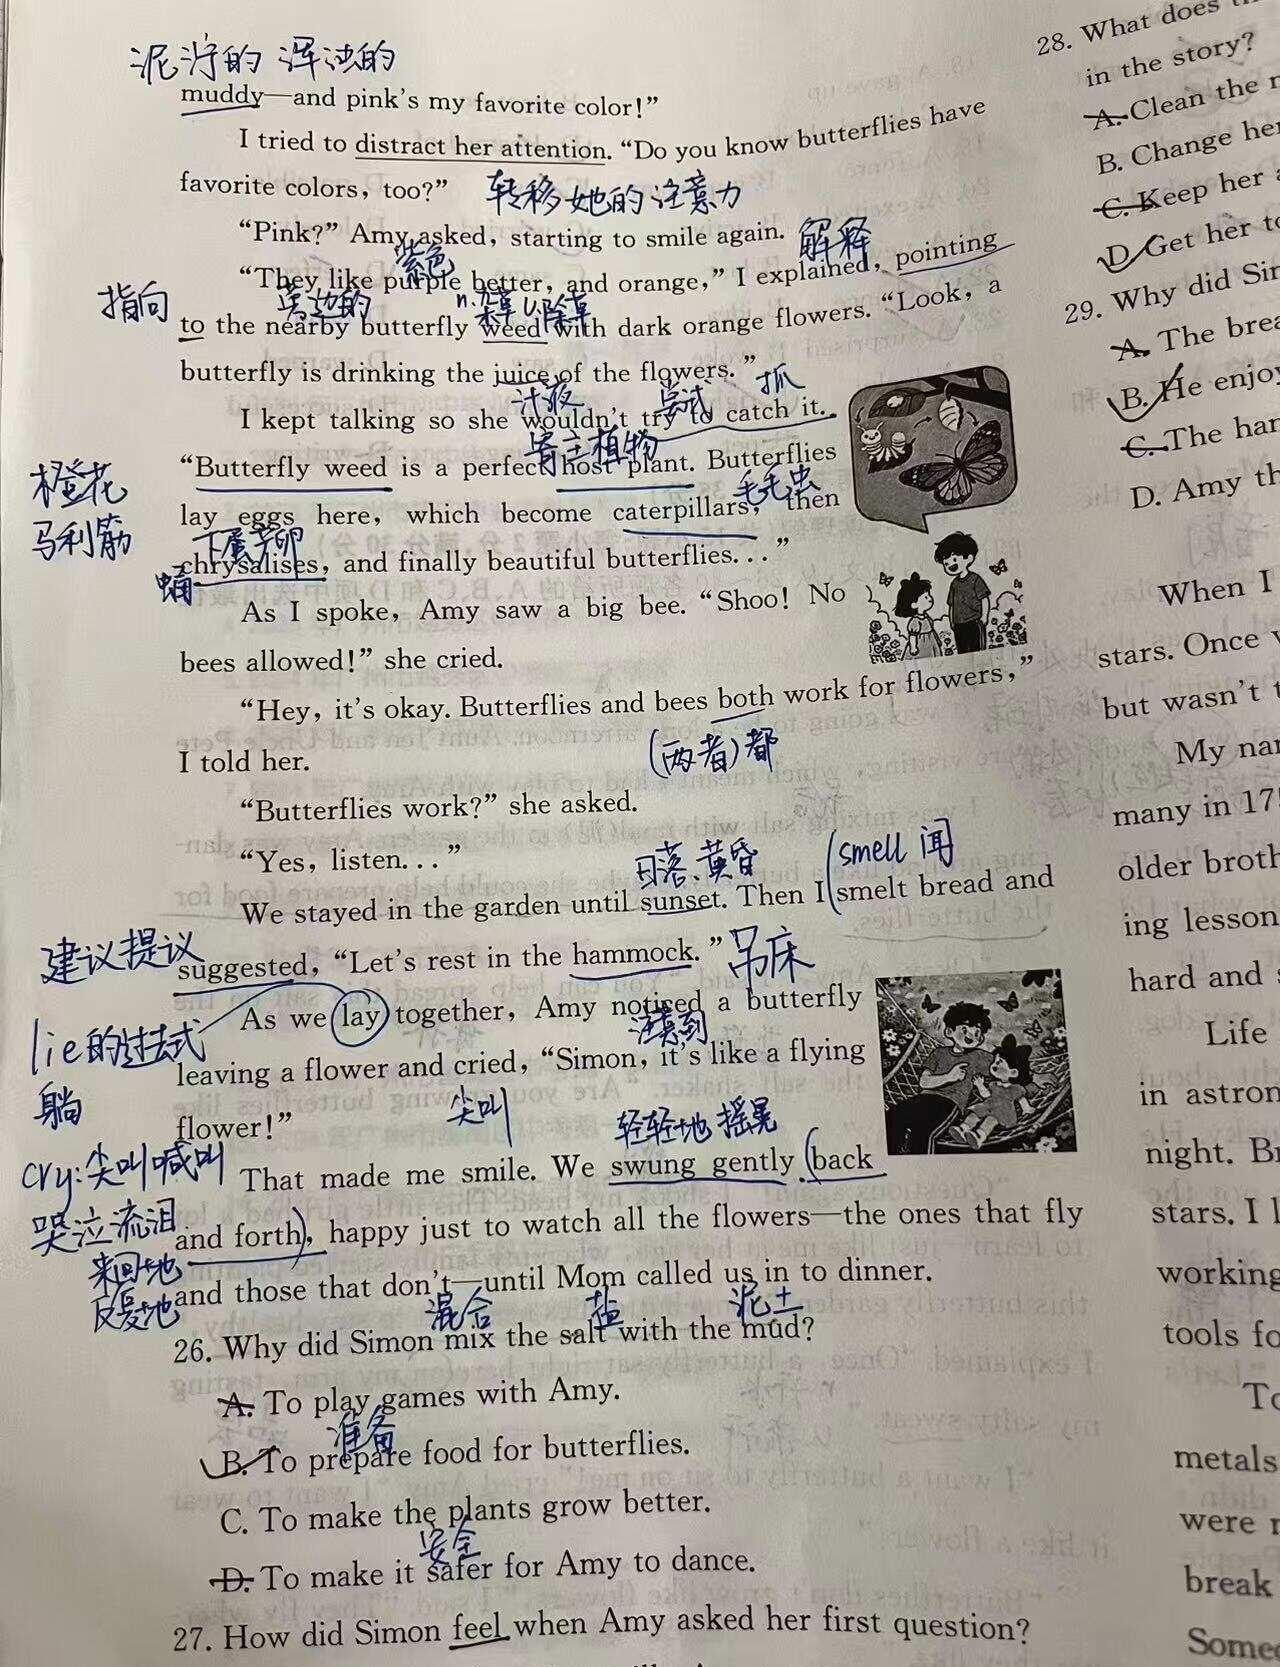 泥泞的 浑浊的
muddy—and pink's my favorite color!”
I tried to distract her attention. “Do you know butterflies have
favorite colors, too?” 转移她的注意力
“Pink?” Amy asked, starting to smile again. 解释
紫色
“They like purple better, and orange,” I explained, pointing
指向 旁边的 n.杂草 v.除草
to the nearby butterfly weed with dark orange flowers. “Look, a
butterfly is drinking the juice of the flowers.”
汁液 尝试 抓
I kept talking so she wouldn't try to catch it.
寄主植物
“Butterfly weed is a perfect host plant. Butterflies
橙花
马利筋
毛毛虫
lay eggs here, which become caterpillars, then
下属产卵
蛹
chrysalises, and finally beautiful butterflies...”
As I spoke, Amy saw a big bee. “Shoo! No
bees allowed!” she cried.
“Hey, it's okay. Butterflies and bees both work for flowers,”
I told her. (两者)都
“Butterflies work?” she asked.
“Yes, listen...”
日落、黄昏 smell 闻
We stayed in the garden until sunset. Then I smelt bread and
建议提议
suggested, “Let's rest in the hammock.” 吊床
As we lay together, Amy noticed a butterfly
lie的过去式 注意到
躺
leaving a flower and cried, “Simon, it's like a flying
flower!” 尖叫 轻轻地 摇晃
cry:尖叫喊叫
哭泣流泪
That made me smile. We swung gently back
and forth, happy just to watch all the flowers—the ones that fly
来回地
反复地
and those that don't—until Mom called us in to dinner.
混合 盐 泥土
26. Why did Simon mix the salt with the mud?
A. To play games with Amy.
准备
B. To prepare food for butterflies.
C. To make the plants grow better.
安全
D. To make it safer for Amy to dance.
27. How did Simon feel when Amy asked her first question?
28. What does
in the story?
A. Clean the
B. Change her
C. Keep her
D. Get her to
29. Why did
A. The
B. He enjoy
C. The
D. Amy
When I
stars. Once
but wasn't
My
many in
older
ing lesson
hard and
Life
in
night.
stars. I
working
tools
metals
were
break